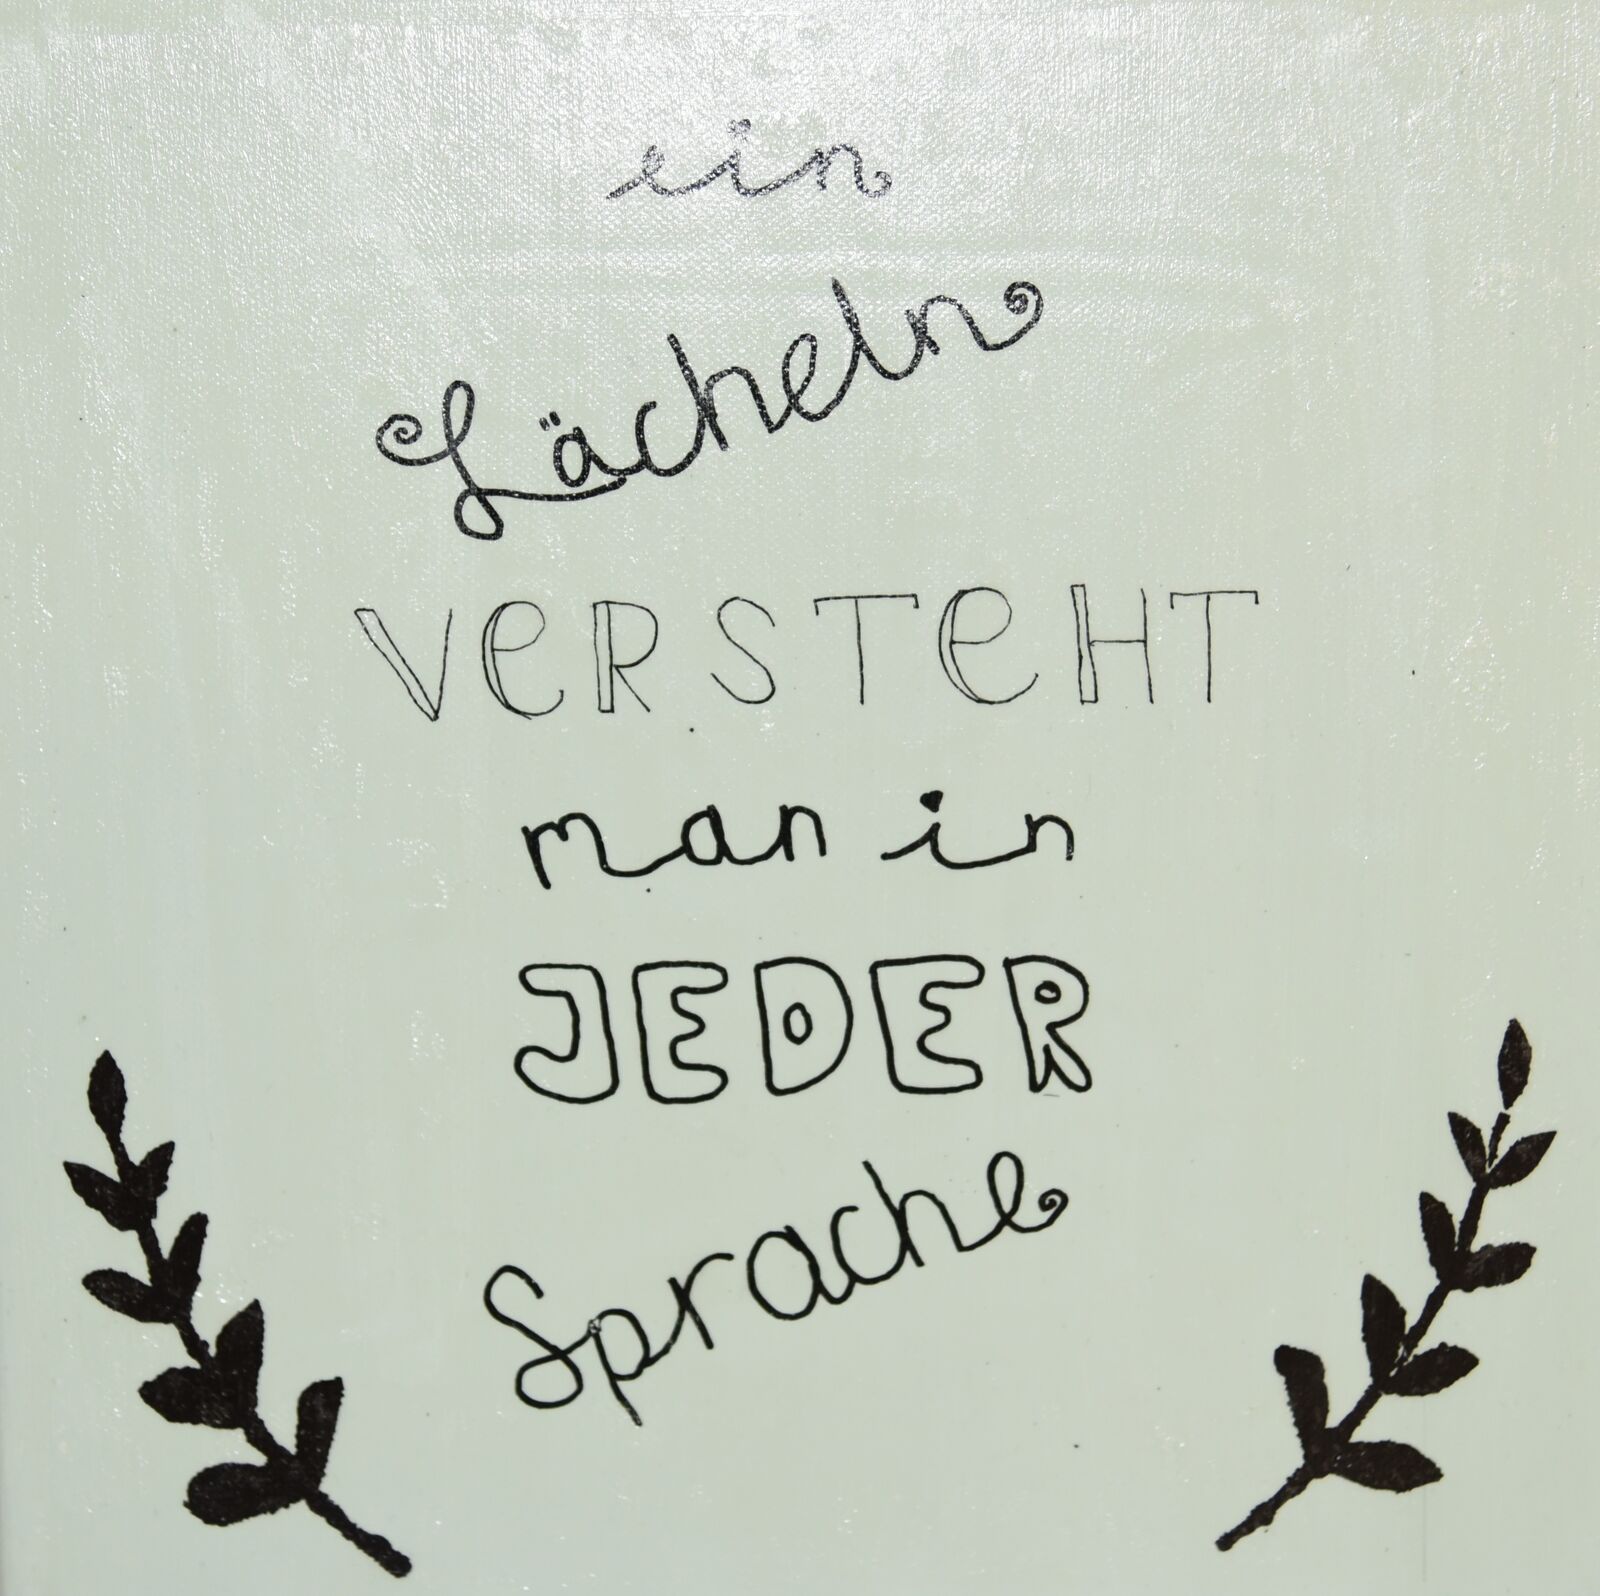 ein
Lächeln
VeRSTeHT
man in
JEDER
Sprache